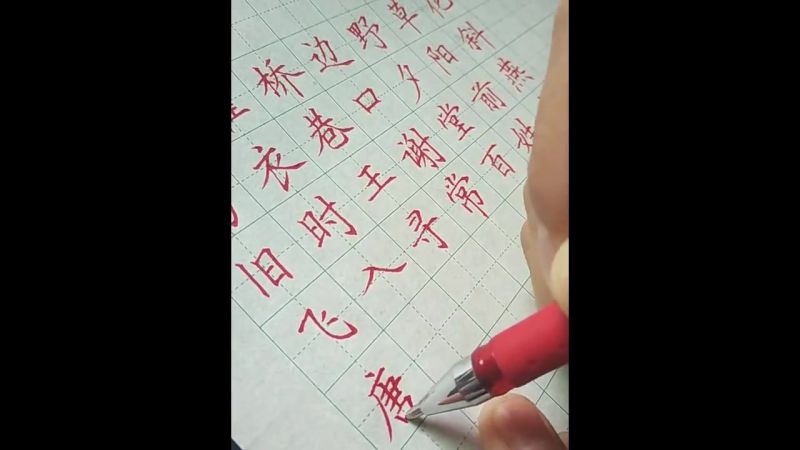 桥边野草花
衣巷口夕阳斜
旧时王谢堂前燕
飞入寻常百姓
唐